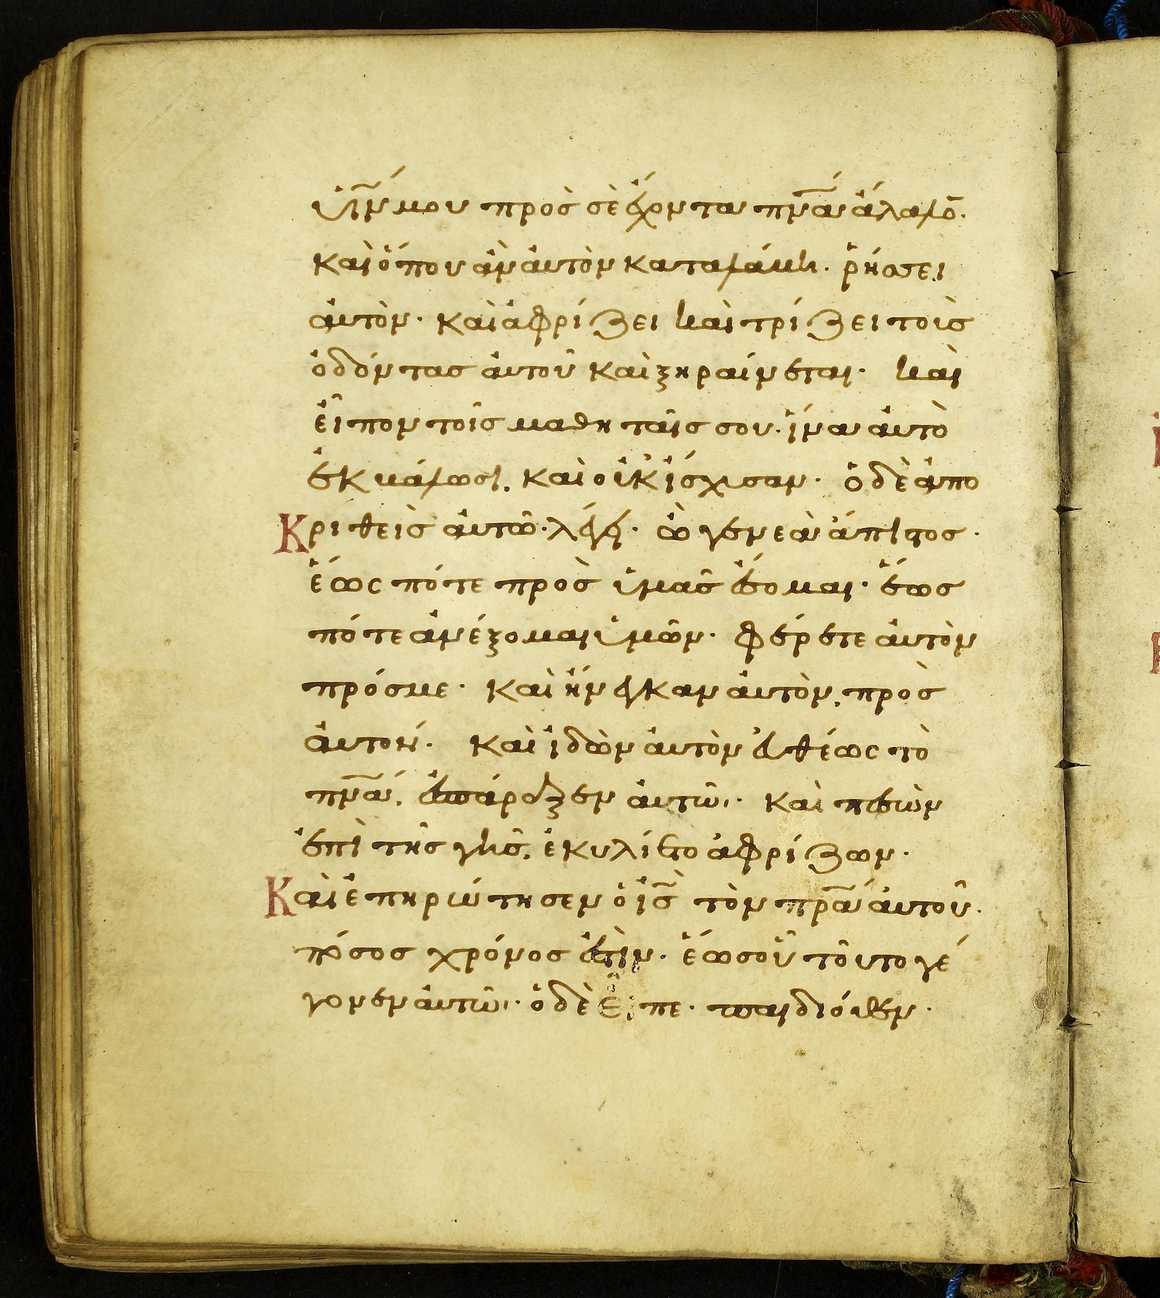 ὑῖν μου πρὸς σὲ ἔχοντα πνᾶ ἄλαλο̄.
καὶ ὅπου ἂν ἀυτὸν καταλάβη· ῥήσσει
ἀυτὸν· καὶ ἀφρίζει καὶ τρίζει τοὺσ
ὀδόντασ ἀυτοῦ καὶ ξηραίνεται· καὶ
εἶπον τοῖς μαθηταῖς σου. ἵνα ἀυτὸ
ἐκβάλωσι. καὶ οὐκ ἴσχυσαν· ὁ δὲ ἀπο
Κριθεὶσ ἀυτῶ· λέγει· ὦ γενεὰ ἄπιστος·
ἕως πότε πρὸσ ὑμᾶσ ἔσομαι· ἕωσ
πότε ἀνέξομαι ὑμῶν· φέρετε ἀυτὸν
πρόσμε· καὶ ἤνεγκαν ἀυτὸν. πρὸσ
ἀυτον· καὶ ἰδὼν ἀυτὸν ἐυθέως τὸ
πνᾶ. ἐσπάραξεν ἀυτῶ· καὶ πεσὼν
ἐπὶ τῆσ γῆσ. ἐκυλίετο ἀφρίζων·
Καὶ ἐπηρώτησεν ὁ ις̄ τὸν πρᾶ ἀυτοῦ·
πόσοσ χρόνοσ ἐστὶν· ἕωσ οὗ τοῦτο γέ
γονεν ἀυτῶ· ὁ δὲ εἶπε· παιδιόθεν·